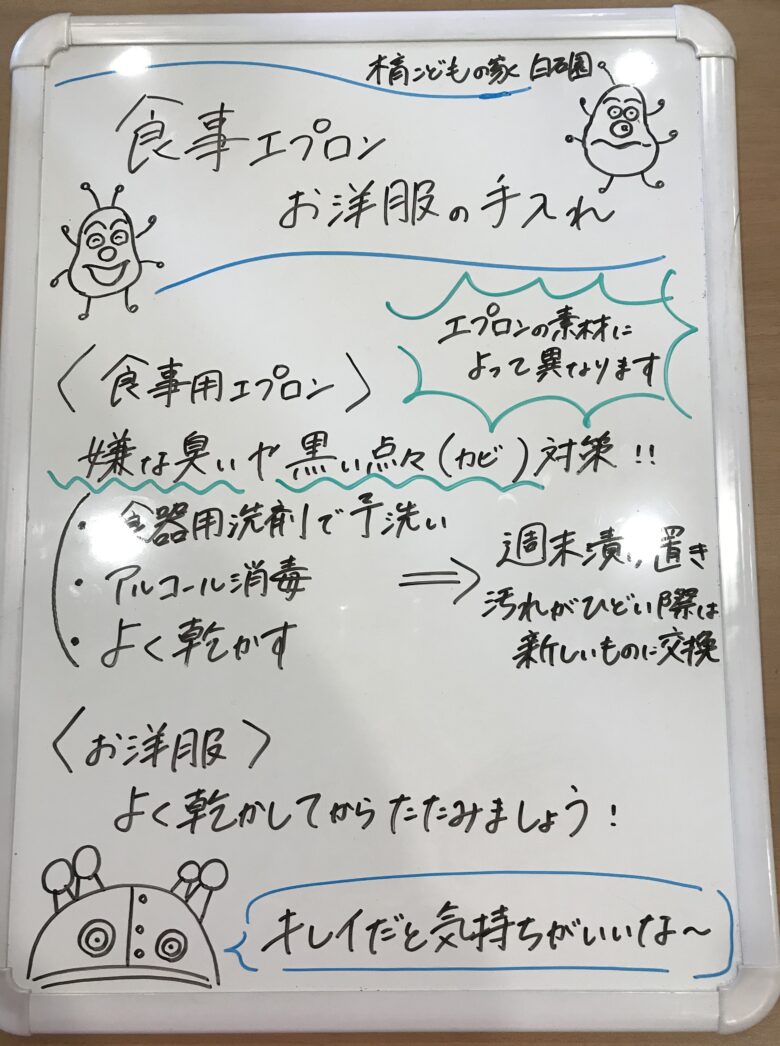 椿こどもの家 白石園
食事エプロン
お洋服の手入れ
エプロンの素材に
よって異なります
〈食事用エプロン〉
嫌な臭いや黒い点々(カビ)対策!!
・食器用洗剤で予洗い
・アルコール消毒
・よく乾かす
⇒
週末漬け置き
汚れがひどい際は
新しいものに交換
〈お洋服〉
よく乾かしてからたたみましょう!
キレイだと気持ちがいいな〜